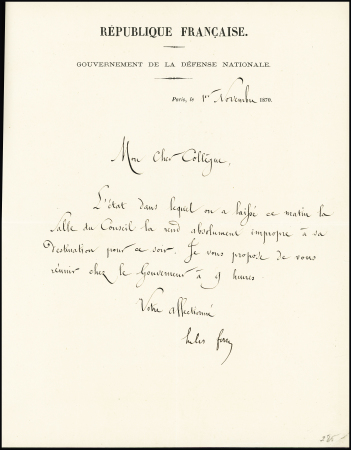 RÉPUBLIQUE FRANÇAISE.
GOUVERNEMENT DE LA DÉFENSE NATIONALE.
Paris, le 1er Novembre 1870.
Mon Cher Collègue,
L'état dans lequel on a laissé ce matin la
Salle du Conseil la rend absolument impropre à sa
Destination pour ce soir. Je vous propose de vous
réunir chez le Gouverneur à 9 heures.
Votre affectionné
Jules Ferry